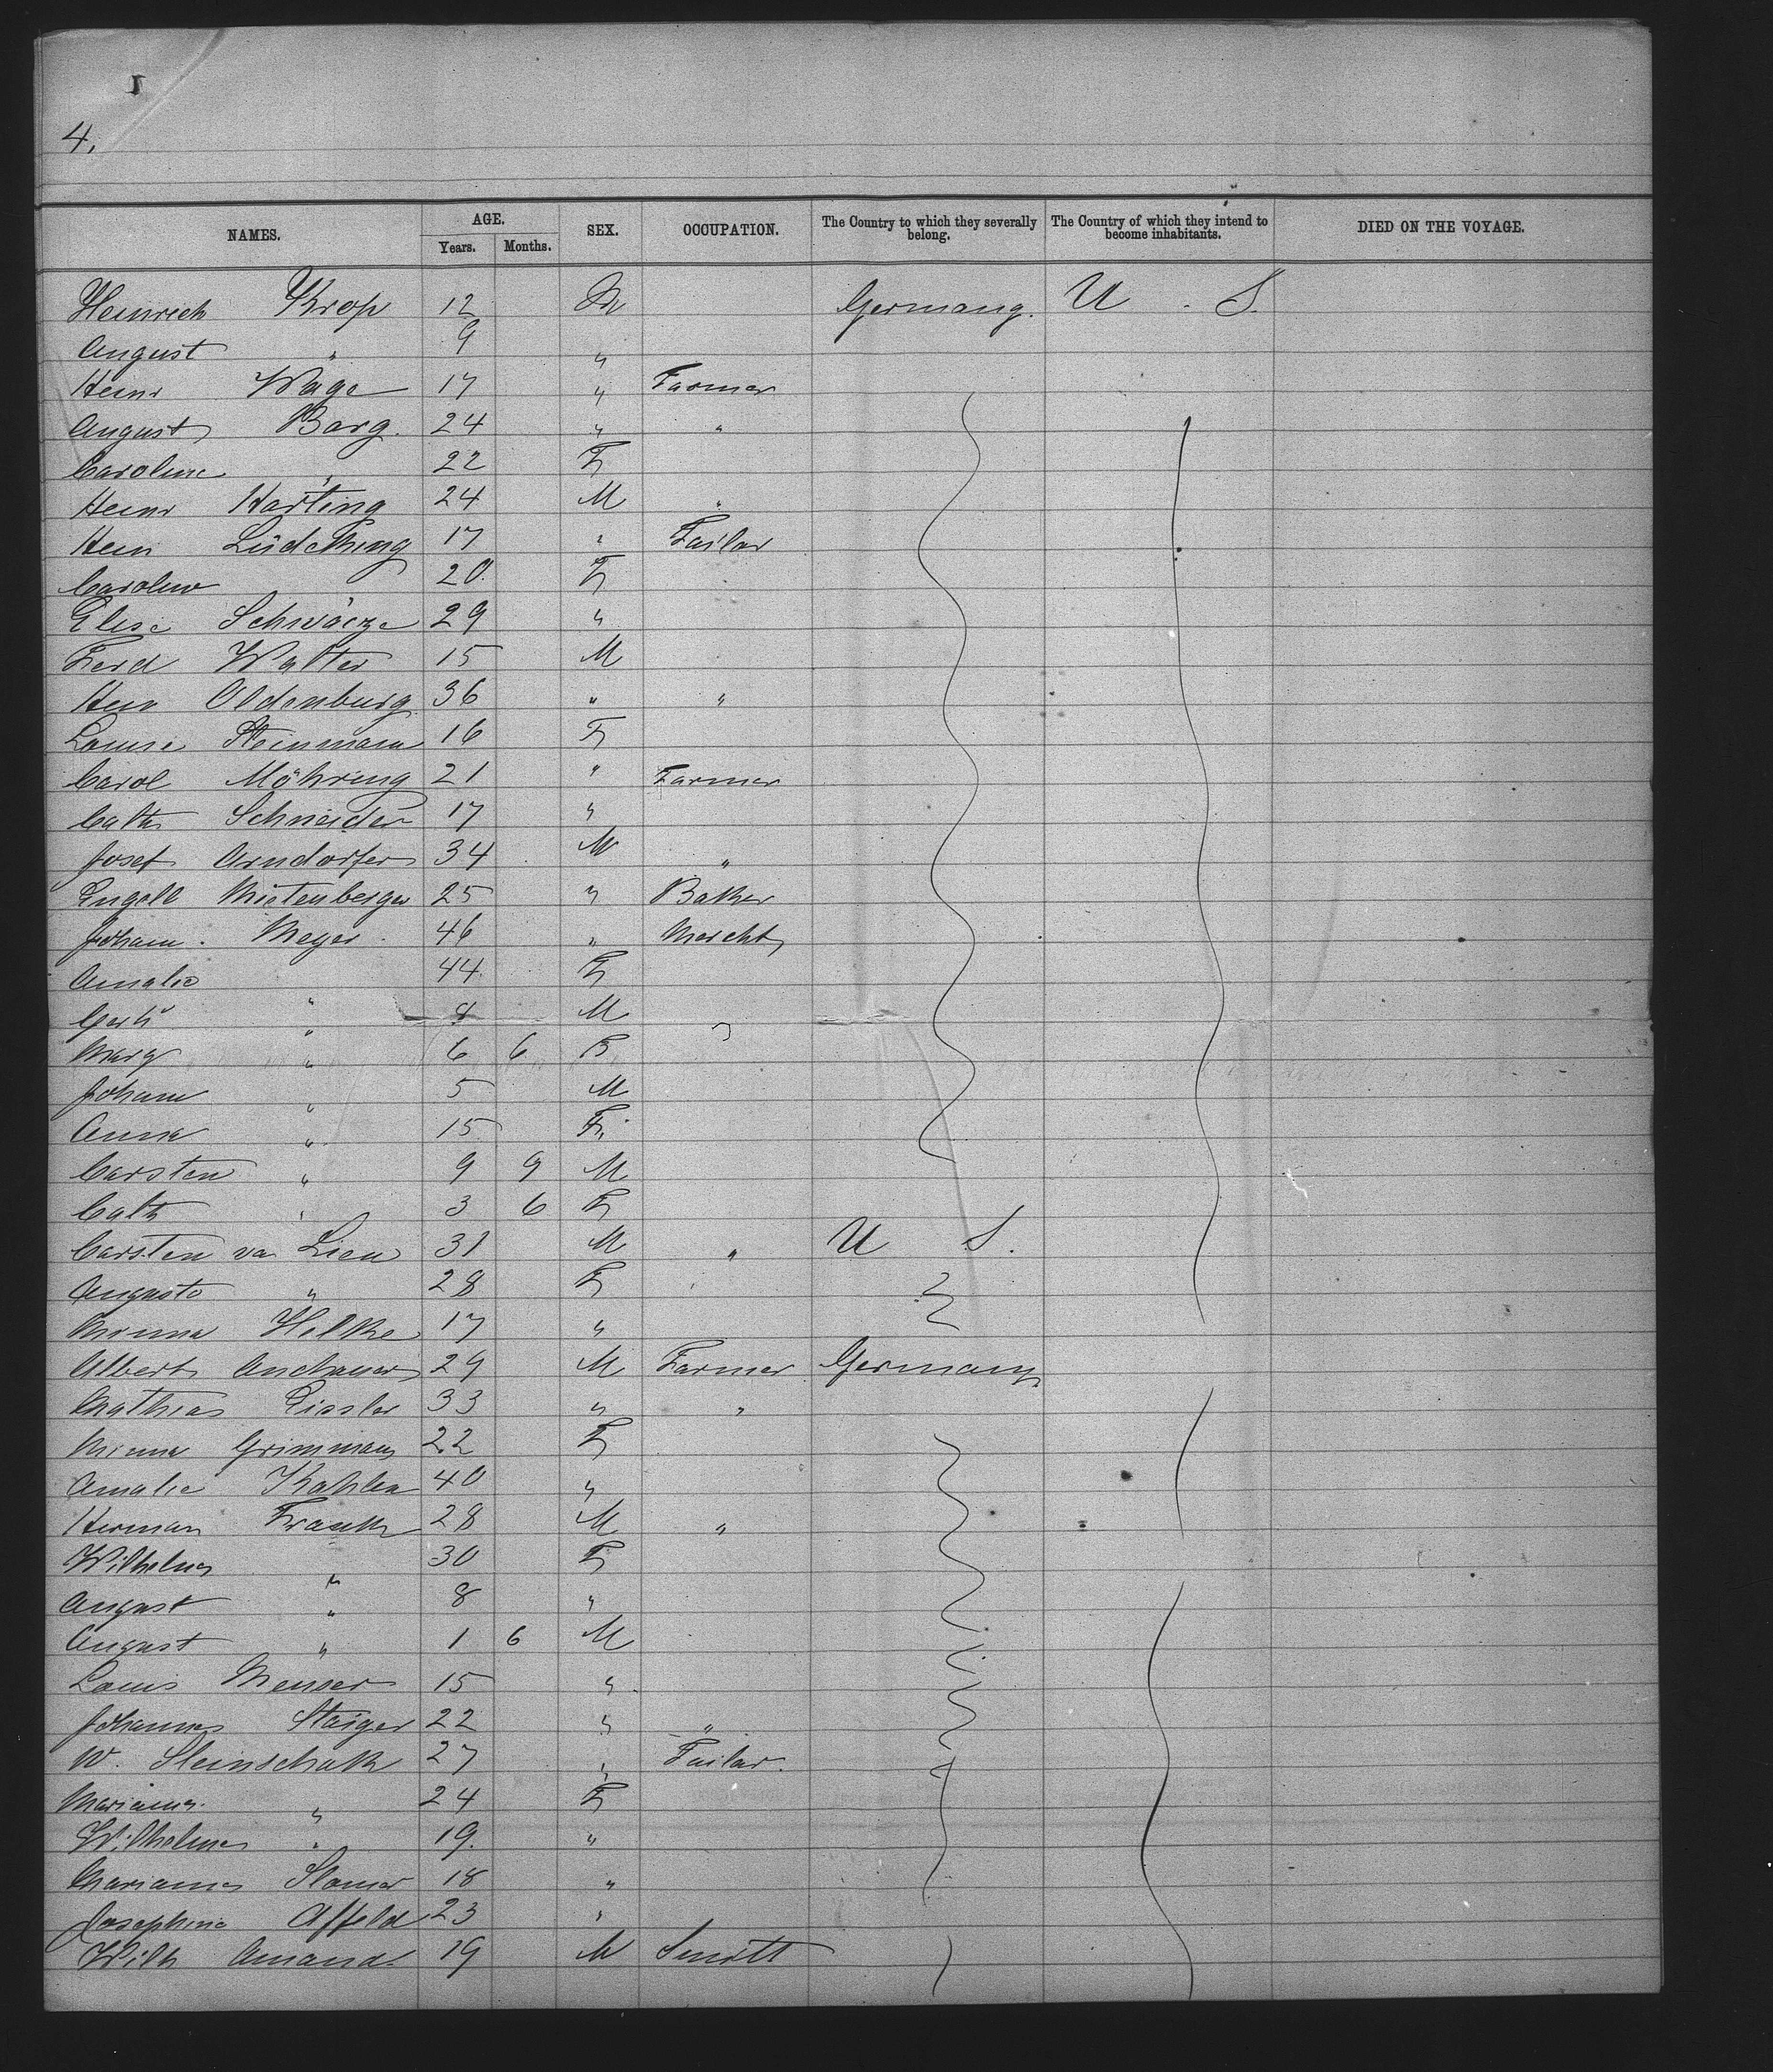 4.
NAMES. AGE. Years. Months. SEX. OCCUPATION. The Country to which they severally belong. The Country of which they intend to become inhabitants. DIED ON THE VOYAGE.
Heinrich Krop 12 M Germany. U. S.
August " 9 "
Heinr Wage 17 " Farmer
August Barg. 24 " "
Caroline " 22 F
Heinr Harting 24 M "
Hein Lüdeking 17 " Tailor
20. F
Elise 29 "
Ferd Walter 15 M
Hein Oldenburg 36 " "
Louise Steinmann 16 F
Carol Möhring 21 " Farmer
Cath Schneider 17 "
Josef Arndorfer 34 M "
Engelb Mietenberger 25 " Baker
Johann. Meyer. 46 " Marcht
Amalie 44. F
" 8 M "
Marg " 6 6 F
Johann " 5 M
Anna " 15 F.
Carsten " 9 9 M
Cath " 3 6 F
Carsten va Lien 31 M " U S.
Auguste " 28 F
Minna Helke 17 "
Albert 29 M Farmer Germany
Mathias Eissler 33 " "
Minna Grimmann 22 F
Amalie Kahlen 40 "
Herman Frank 28 M "
Wilhelm " 30 F
August " 8 "
August " 1 6 M
Louis Menser 15 "
Johannes Staiger 22 " "
W. Steinschak 27 " Tailor.
Mariana. " 24 F
Wilhelm " 19. "
Mariana 18 "
Josephine Affeld 23 "
Wilh Amand. 19 M